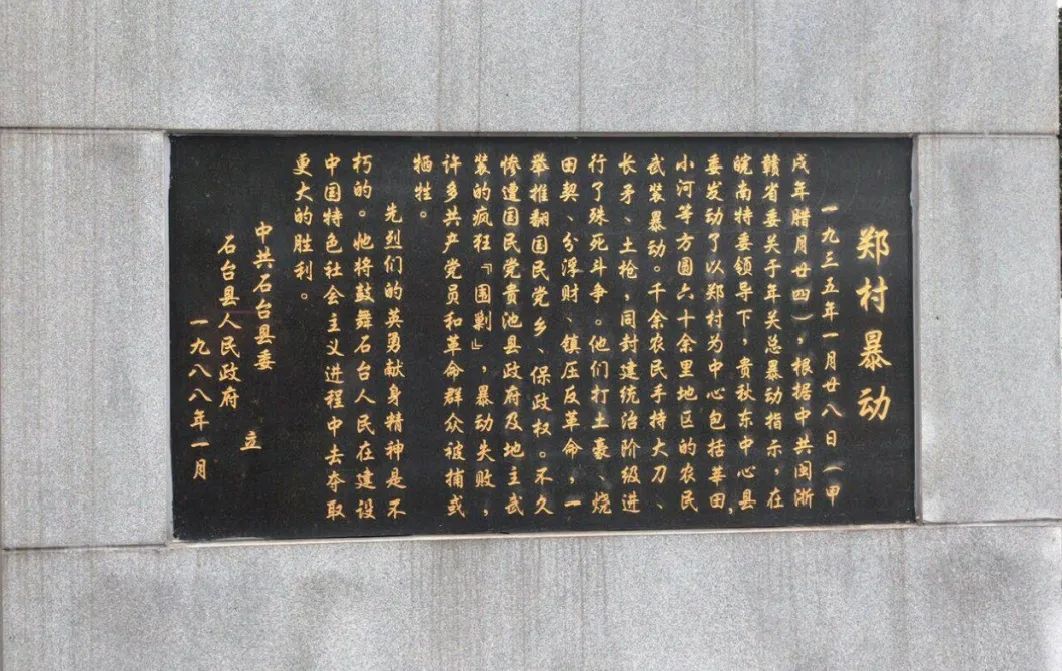 郑村暴动
一九三五年一月廿八日(甲
戌年腊月廿四),根据中共闽浙
赣省委关于年关总暴动指示,在
皖南特委领导下,贵秋东中心县
委发动了以郑村为中心包括莘田,
小河等方圆六十余里地区的农民
武装暴动。千余农民手持大刀、
长矛、土枪,同封建统治阶级进
行了殊死斗争。他们打土豪、烧
田契、分浮财、镇压反革命,一
举推翻国民党乡、保政权。不久
惨遭国民党贵池县政府及地主武
装的疯狂『围剿』,暴动失败,
许多共产党员和革命群众被捕或
牺牲。
先烈们的英勇献身精神是不
朽的。他将鼓舞石台人民在建设
中国特色社会主义进程中去夺取
更大的胜利。
中共石台县委
石台县人民政府 立
一九八八年一月